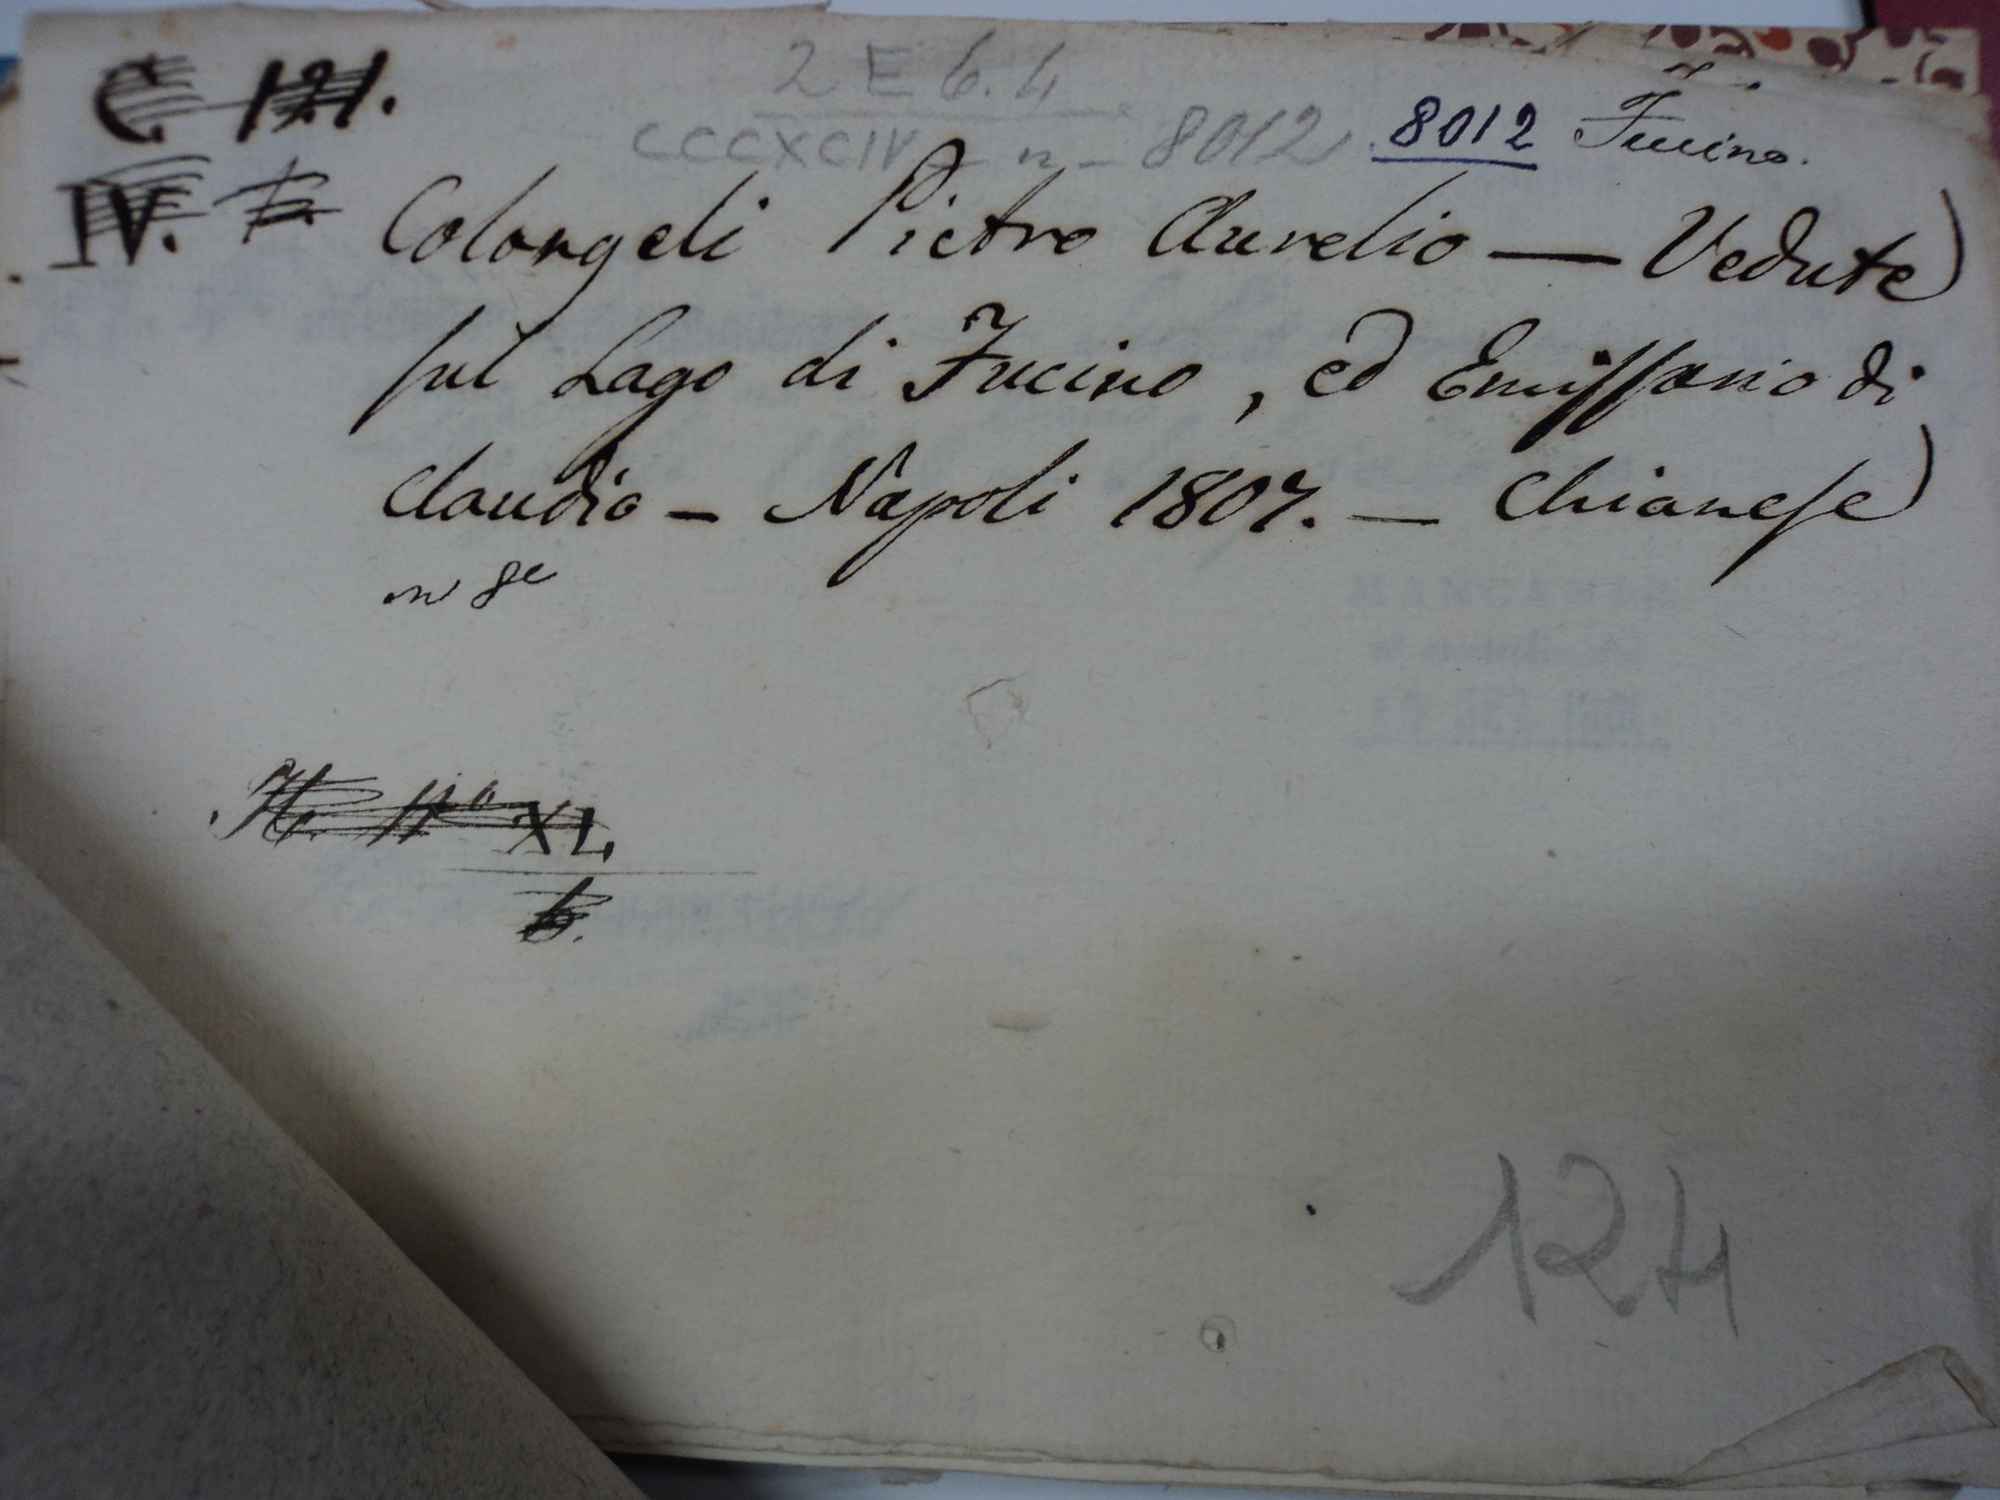 2 E 6. 4
C 121.
CCCXCIV - n - 8012 8012 Fucino.
IV. 6.
Colangeli Pietro Aurelio — Vedute
sul Lago di Fucino, ed Emissario di
Claudio — Napoli 1807. — Chianese
in 8º
XL
6.
124